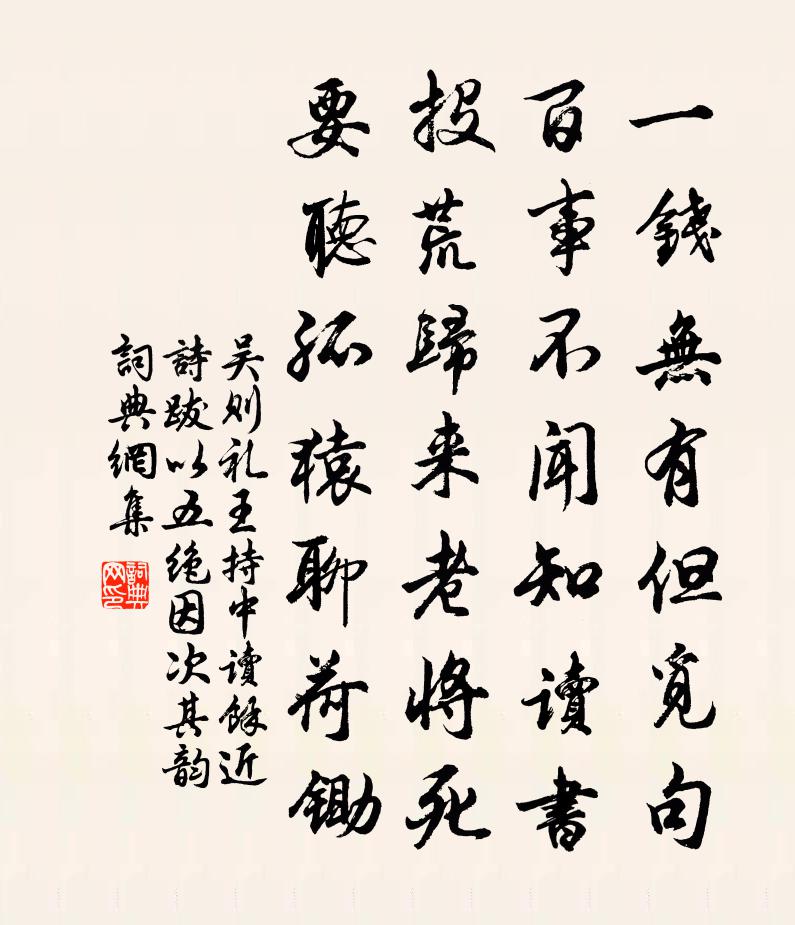 一錢無有但覓句
百事不聞知讀書
投荒歸来老將死
要聽孤猿聊荷鋤
吴则礼王持中讀餘近
詩跋以五绝因次其韵
詞典網集
詞典网印